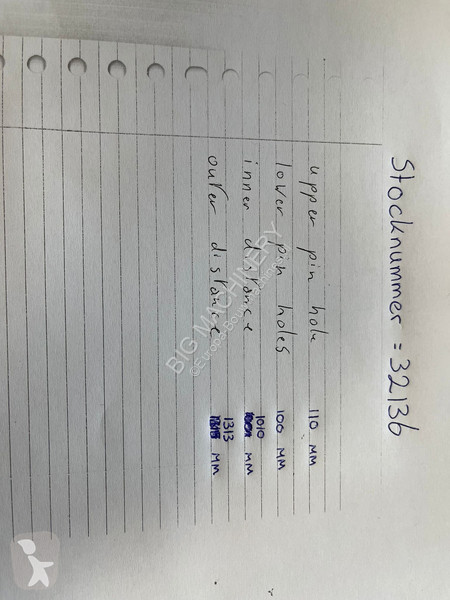 Stocknummer = 32136
upper pin hole 110 MM
lower pin holes 100 MM
inner distance 1010 MM
outer distance 1313 MM
BIG MACHINERY